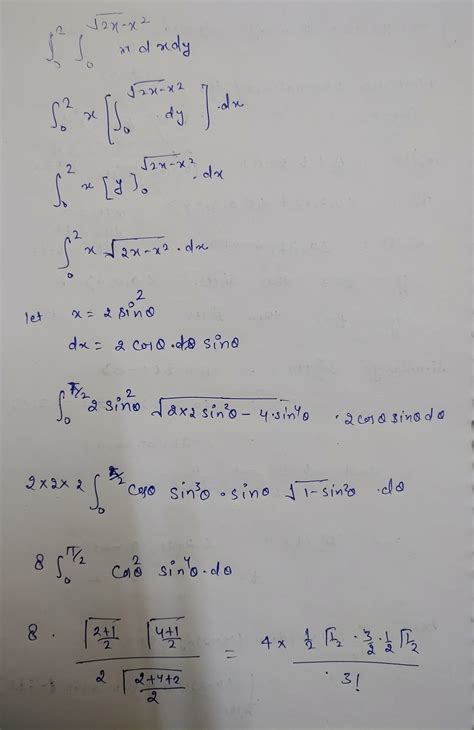 ∫₀² ∫₀^√(2x-x²) x dxdy
∫₀² x [∫₀^√(2x-x²) dy] · dx
∫₀² x [y]₀^√(2x-x²) · dx
∫₀² x √(2x-x²) · dx
let x = 2 sin²θ
dx = 2 cosθ · dθ sinθ
∫₀^π/2 2 sin²θ √(2×2 sin²θ - 4·sin⁴θ) · 2cosθ sinθ dθ
2×2×2 ∫₀^π/2 cosθ sin³θ · sinθ √(1-sin²θ) · dθ
8 ∫₀^π/2 cos²θ sin⁴θ · dθ
8 · (Γ((2+1)/2) Γ((4+1)/2)) / (2 Γ((2+4+2)/2)) = 4 × (1/2 Γ(1/2) · 3/2 · 1/2 Γ(1/2)) / 3!